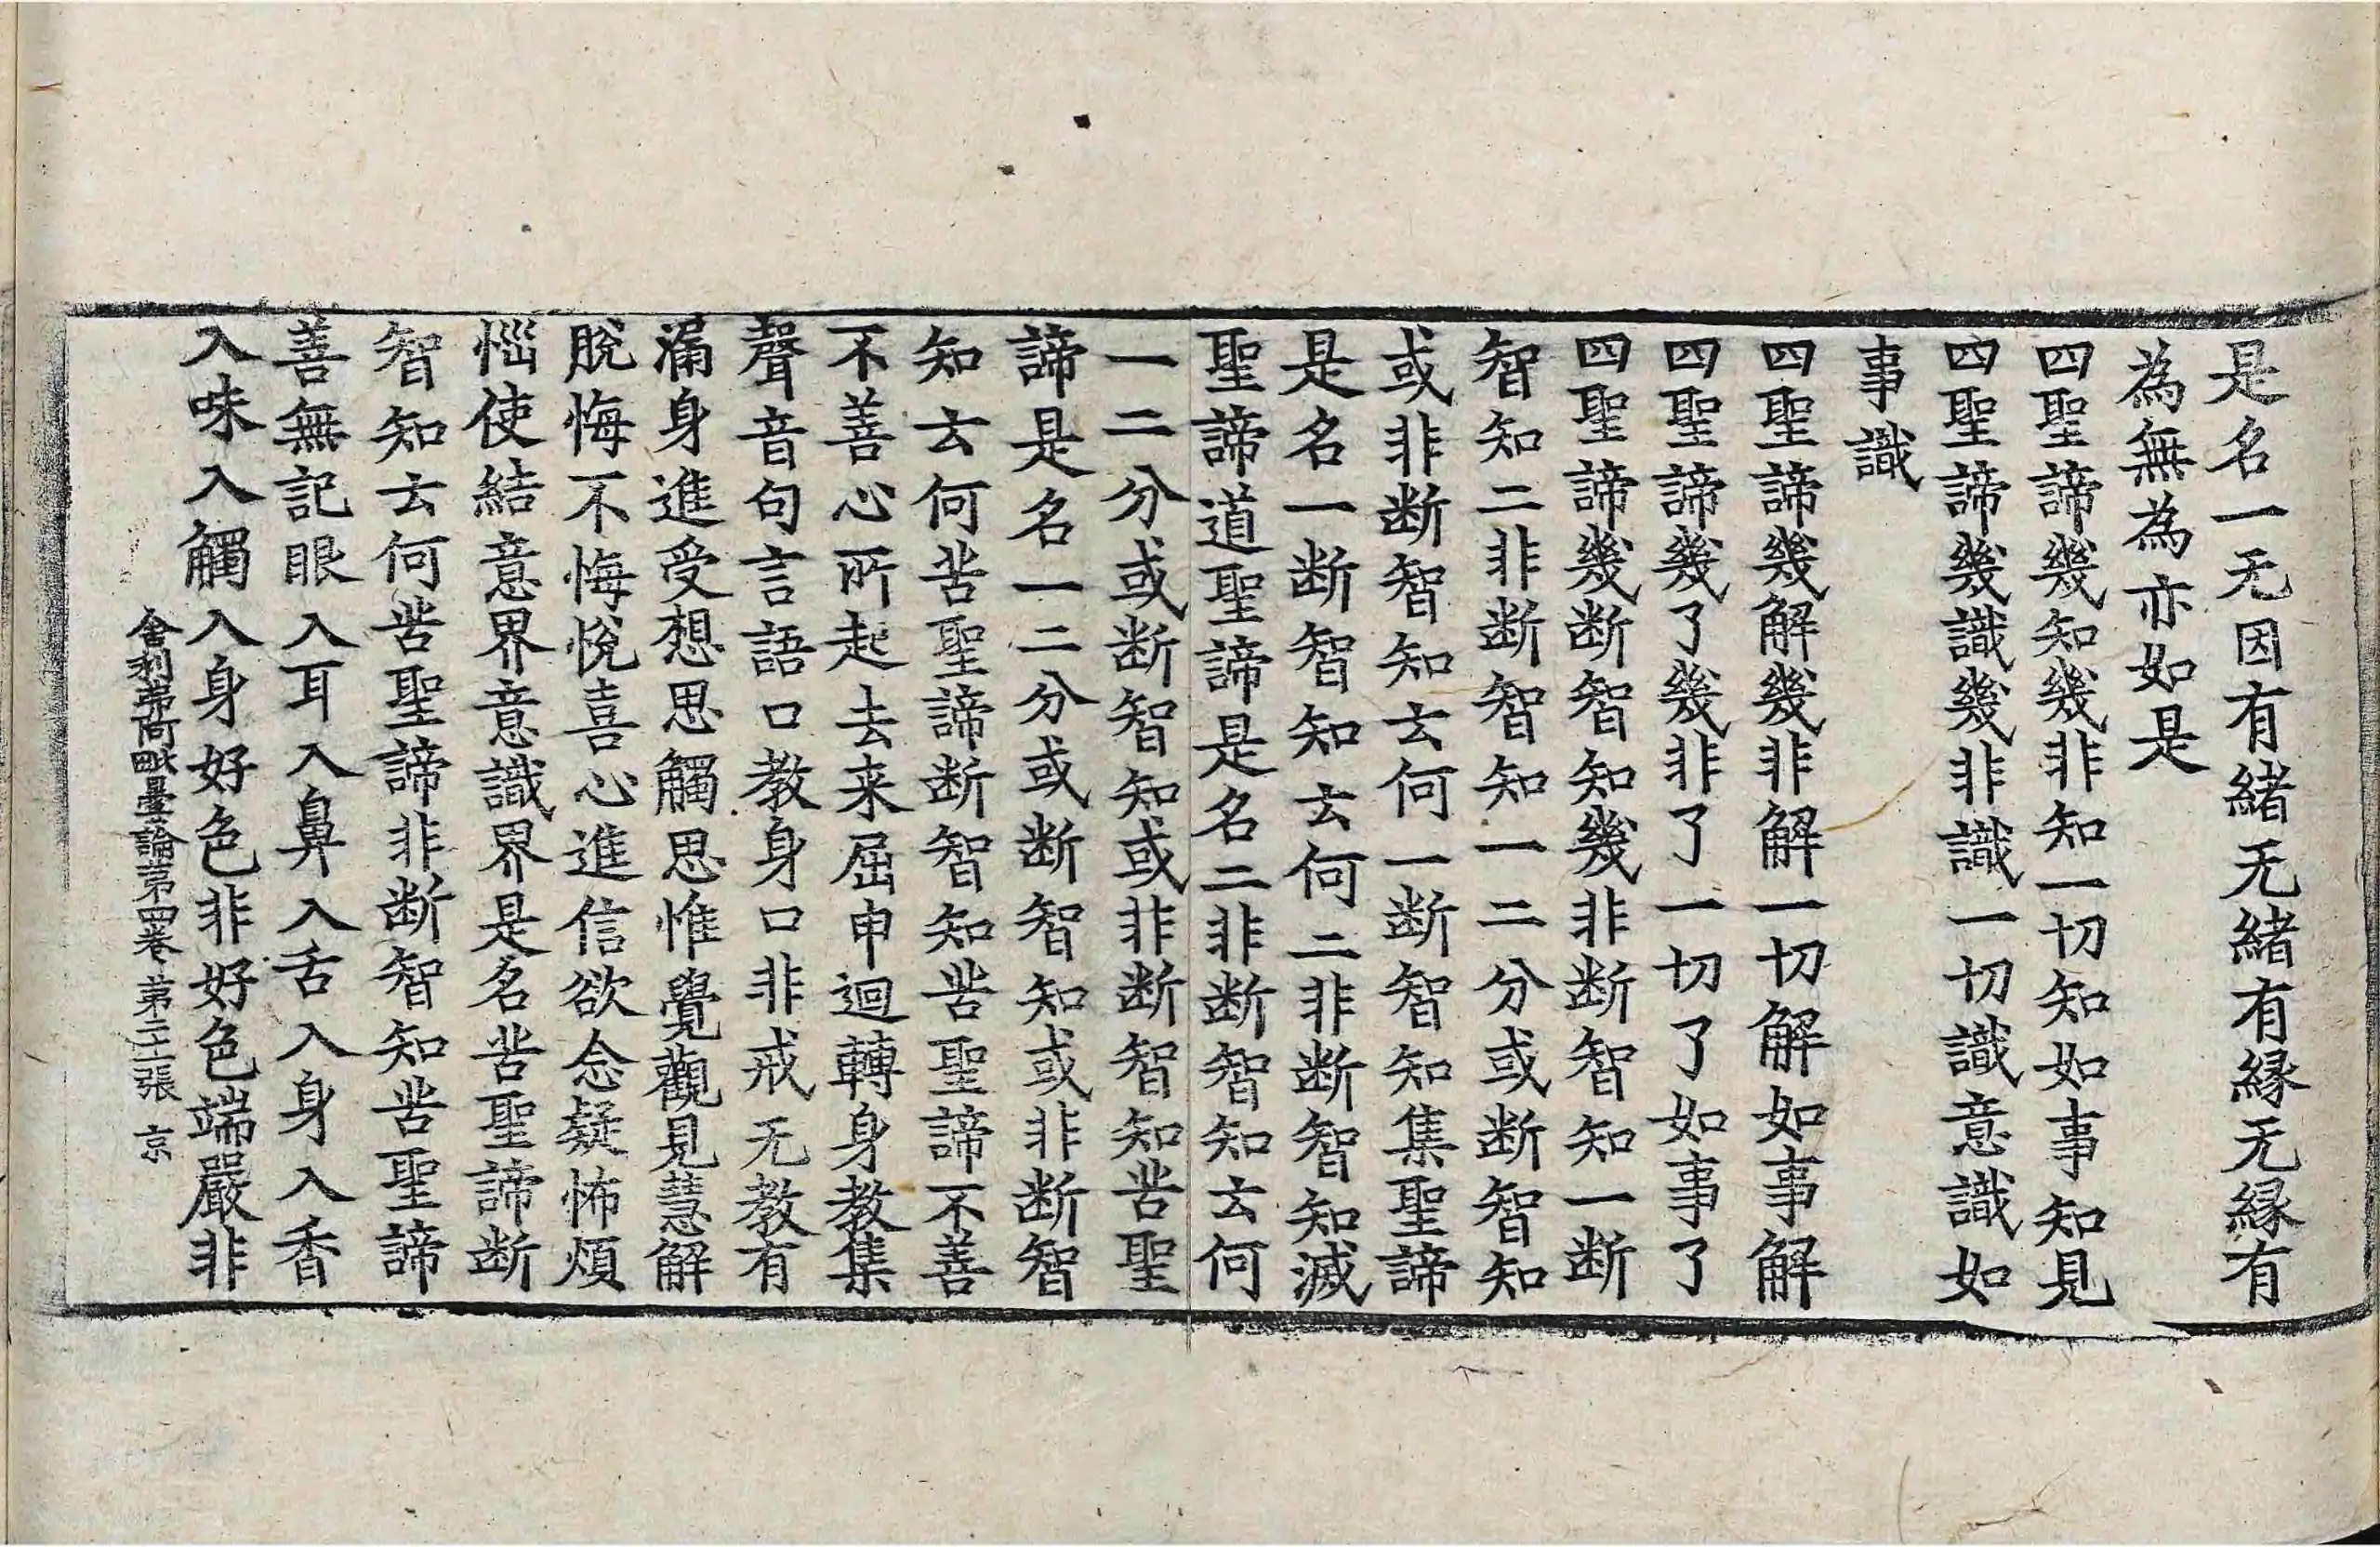 是名一无因有緒无緒有縁无縁有
為無為亦如是
四聖諦幾知幾非知一切知如事知見
四聖諦幾識幾非識一切識意識如
事識
四聖諦幾解幾非解一切解如事解
四聖諦幾了幾非了一切了如事了
四聖諦幾断智知幾非断智知一断
智知二非断智知一二分或断智知
或非断智知云何一断智知集聖諦
是名一断智知云何二非断智知滅
聖諦道聖諦是名二非断智知云何
一二分或断智知或非断智知苦聖
諦是名一二分或断智知或非断智
知云何苦聖諦断智知苦聖諦不善
不善心所起去来屈申迴轉身教集
聲音句言語口教身口非戒无教有
漏身進受想思觸思惟覺觀見慧解
脫悔不悔悅喜心進信欲念疑怖煩
惱使結意界意識界是名苦聖諦断
智知云何苦聖諦非断智知苦聖諦
善無記眼入耳入鼻入舌入身入香
入味入觸入身好色非好色端嚴非
舍利弗阿毗曇論第四卷 第二十張 京